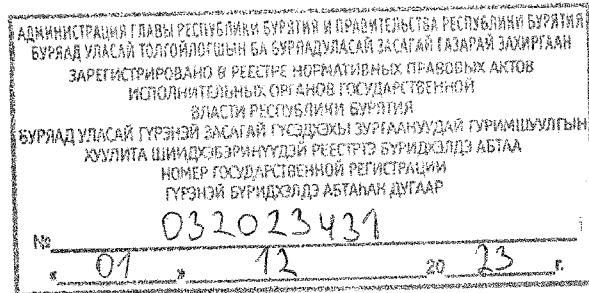 АДМИНИСТРАЦИЯ ГЛАВЫ РЕСПУБЛИКИ БУРЯТИЯ И ПРАВИТЕЛЬСТВА РЕСПУБЛИКИ БУРЯТИЯ
БУРЯАД УЛАСАЙ ТОЛГОЙЛОГШЫН БА БУРЯАД УЛАСАЙ ЗАСАГАЙ ГАЗАРАЙ ЗАХИРГААН
ЗАРЕГИСТРИРОВАНО В РЕЕСТРЕ НОРМАТИВНЫХ ПРАВОВЫХ АКТОВ
ИСПОЛНИТЕЛЬНЫХ ОРГАНОВ ГОСУДАРСТВЕННОЙ
ВЛАСТИ РЕСПУБЛИКИ БУРЯТИЯ
БУРЯАД УЛАСАЙ ГҮРЭНЭЙ ЗАСАГАЙ ГҮСЭДХЭХЫ ЗУРГААНУУДАЙ ГУРИМШУУЛГЫН
ХУУЛИТА ШИИДХЭБЭРИНҮҮДЭЙ РЕЕСТРТЭ БҮРИДХЭЛДЭ АБТАА
НОМЕР ГОСУДАРСТВЕННОЙ РЕГИСТРАЦИИ
ГҮРЭНЭЙ БҮРИДХЭЛДЭ АБТАҺАН ДУГААР
№ 032023431
« 01 » 12 20 23 г.